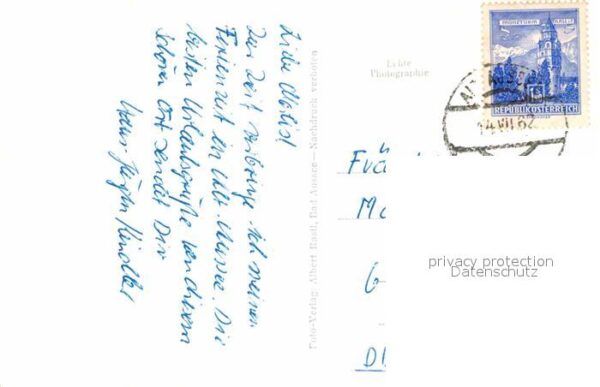 Liebe Maria!
Zur Zeit verbringe ich meine
Ferienzeit in Alt-Aussee. Die
besten Urlaubsgrüße von diesem
schönen Ort sendet Dir
Hans-Jürgen
Foto-Verlag Albert Rastl, Bad Aussee — Nachdruck verboten
Echte
Photographie
MÜNZTURM HALL
REPUBLIK ÖSTERREICH
14.VII.62
Frä
Ma
G
D
privacy protection
Datenschutz